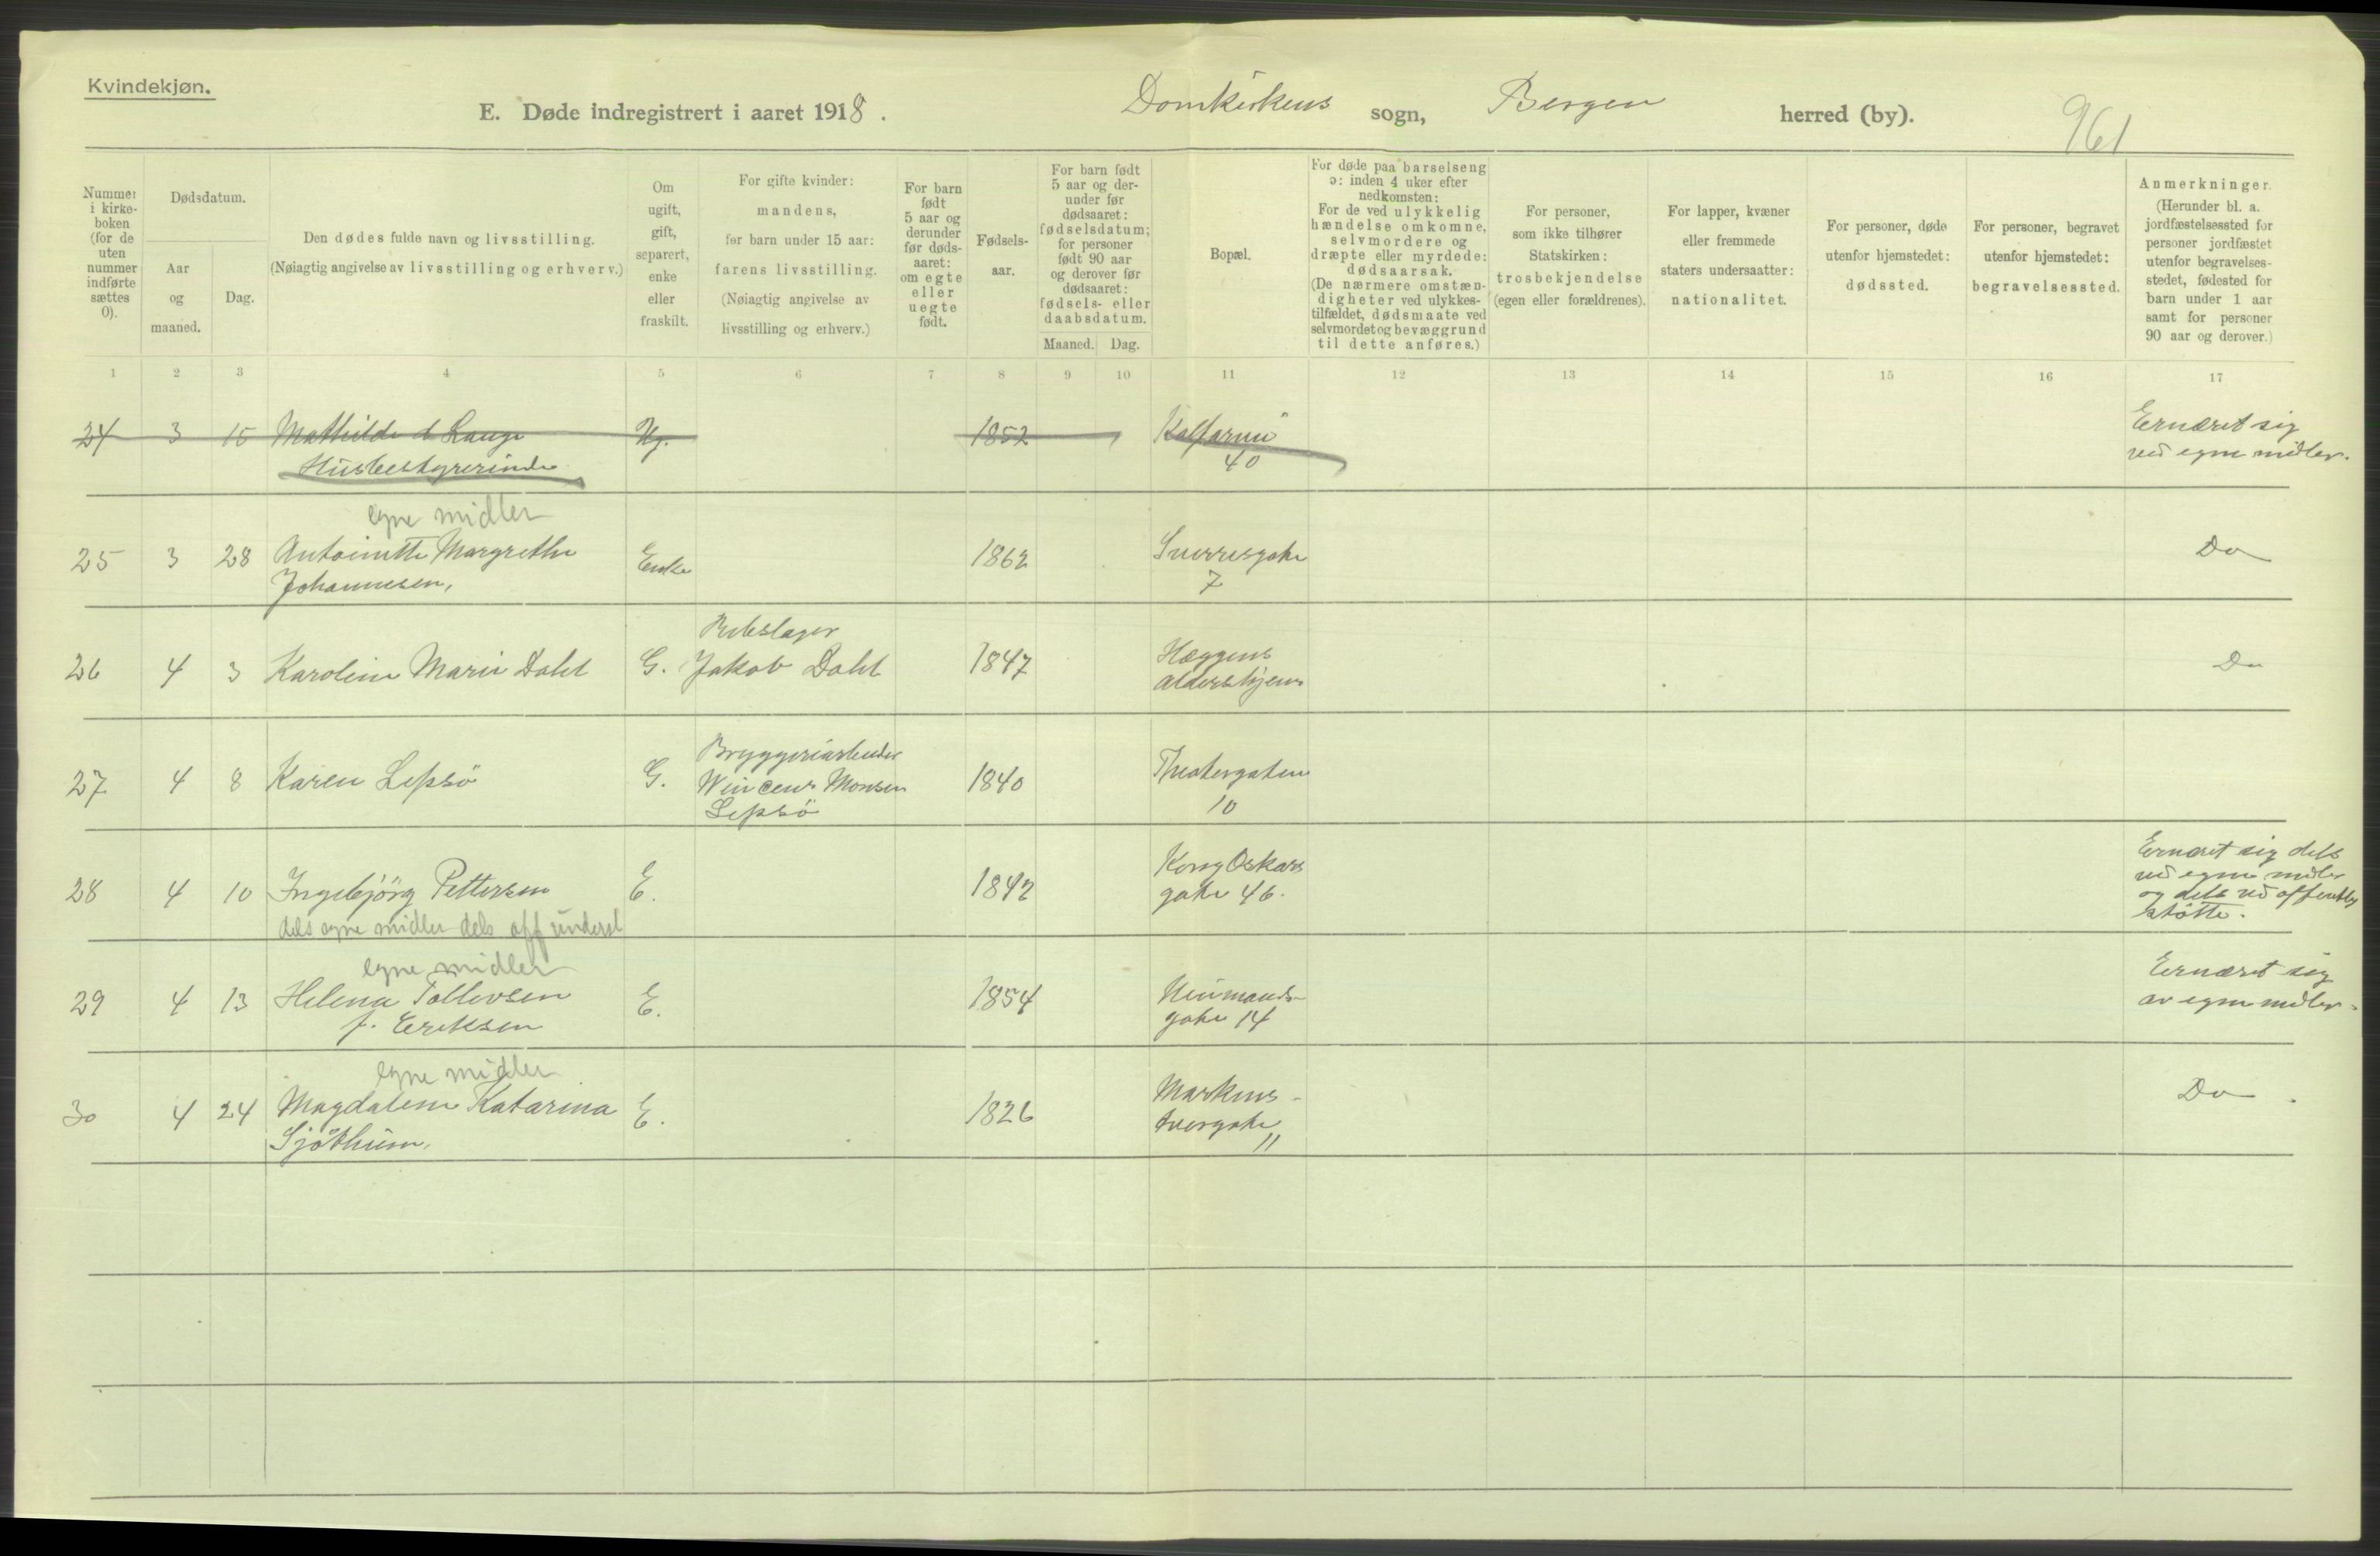 Kvindekjøn.
E. Døde indregistrert i aaret 1918. Domkirkens sogn, Bergen herred (by). 961
Nummer
i kirke-
boken
(for de
uten
nummer
indførte
sættes
0).
Dødsdatum.
Aar
og
maaned.
Dag.
Den dødes fulde navn og livsstilling.
(Nøiagtig angivelse av livsstilling og erhverv.)
Om
ugift,
gift,
separert,
enke
eller
fraskilt.
For gifte kvinder:
mandens,
for barn under 15 aar:
farens livsstilling.
(Nøiagtig angivelse av
livsstilling og erhverv.)
For barn
født
5 aar og
derunder
før døds-
aaret:
om egte
eller
uegte
født.
Fødsels-
aar.
For barn født
5 aar og der-
under før
dødsaaret:
fødselsdatum;
for personer
født 90 aar
og derover før
dødsaaret:
fødsels- eller
daabsdatum.
Maaned. Dag.
Bopæl.
For døde paa barselseng
ɔ: inden 4 uker efter
nedkomsten:
For de ved ulykkelig
hændelse omkomne,
selvmordere og
dræpte eller myrdede:
dødsaarsak.
(De nærmere omstæn-
digheter ved ulykkes-
tilfældet, dødsmaate ved
selvmordet og bevæggrund
til dette anføres.)
For personer,
som ikke tilhører
Statskirken:
trosbekjendelse
(egen eller forældrenes).
For lapper, kvæner
eller fremmede
staters undersaatter:
nationalitet.
For personer, døde
utenfor hjemstedet:
dødssted.
For personer, begravet
utenfor hjemstedet:
begravelsessted.
Anmerkninger.
(Herunder bl. a.
jordfæstelsessted for
personer jordfæstet
utenfor begravelses-
stedet, fødested for
barn under 1 aar
samt for personer
90 aar og derover.)
1 2 3 4 5 6 7 8 9 10 11 12 13 14 15 16 17
24 3 15 Mathilde d. Lange Ug. 1852 Kalfarvei
Husbestyrerinde 40
Ernæret sig
ved egne midler.
egne midler
25 3 28 Antoinette Margrethe Enke 1862 Sverresgate Do
Johannesen, 7
Rebslager
26 4 3 Karoline Marie Dahl G. Jakob Dahl 1847 Hæggens Do
Aldershjem
Bryggeriarbeider
27 4 8 Karen Lepsö G. Wincens Monsen 1840 Theatergaten
Lepsö 10
28 4 10 Ingebjörg Pettersen E. 1842 Kong Oskars
gate 46.
dels egne midler dels off underst
Ernæret sig dels
ved egne midler
og dels ved offentlig
støtte.
egne midler
29 4 13 Helena Tollevsen E. 1854 Neumanns-
f. Eriksen gate 14
Ernæret sig
av egne midler.
egne midler
30 4 24 Magdalene Katarina E. 1826 Markens- Do.
Sjöthun. tvergate
11